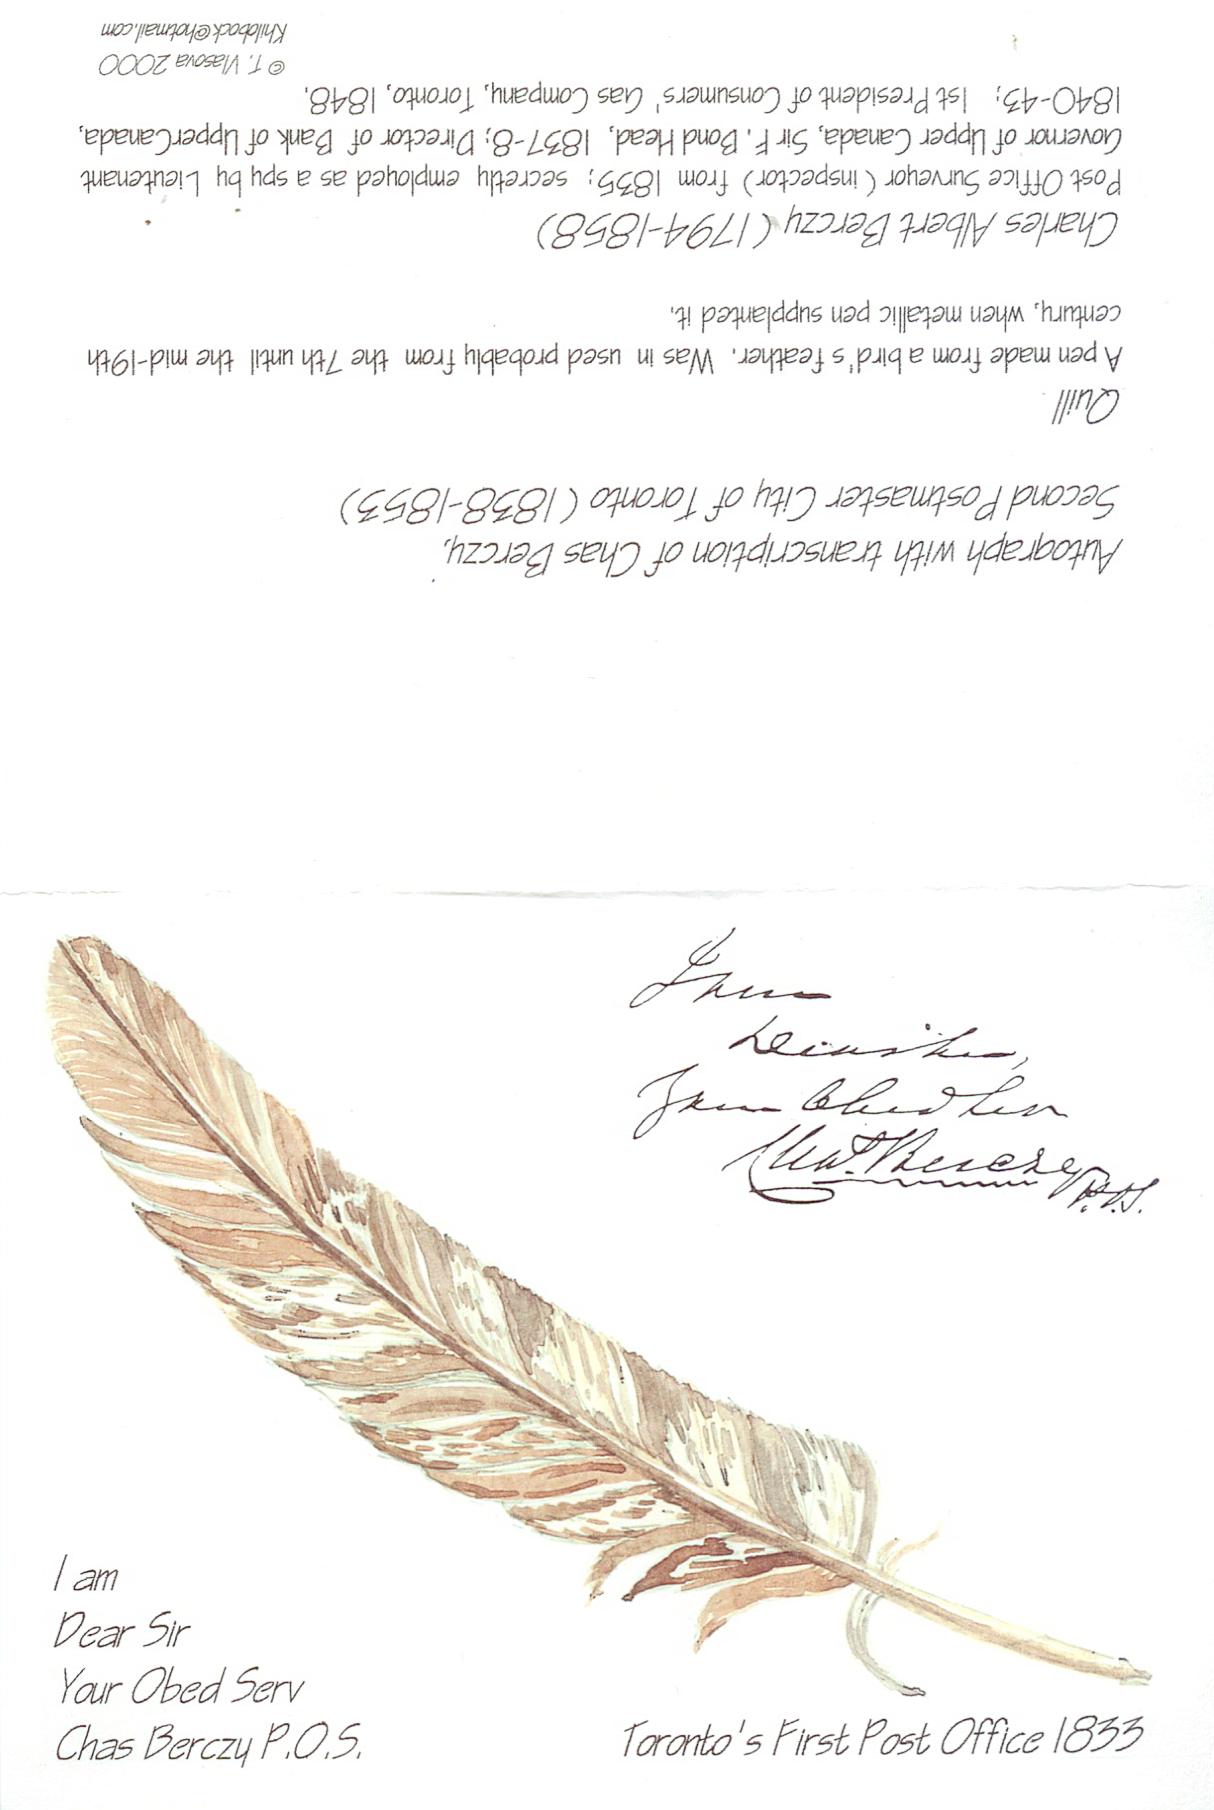 Autograph with transcription of Chas Berczy,
Second Postmaster City of Toronto (1838-1853)
Quill
A pen made from a bird's feather. Was in used probably from the 7th until the mid-19th
century, when metallic pen supplanted it.
Charles Albert Berczy (1794-1858)
Post Office Surveyor (inspector) from 1835; secretly employed as a spy by Lieutenant
Governor of Upper Canada, Sir F. Bond Head, 1837-8; Director of Bank of UpperCanada,
1840-43; 1st President of Consumers' Gas Company, Toronto, 1848.
© T. Vlasova 2000
Khilobock@hotmail.com
I am
Dear Sir,
Your Obed Serv
Chas. Berczy P.O.S.
I am
Dear Sir
Your Obed Serv
Chas Berczy P.O.S.
Toronto's First Post Office 1833